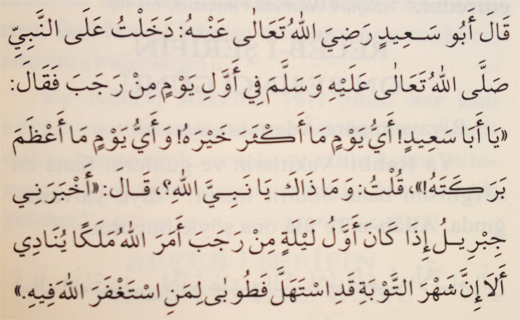 قَالَ أَبُو سَعِيدٍ رَضِيَ اللهُ تَعَالٰى عَنْهُ: دَخَلْتُ عَلَى النَّبِيِّ
صَلَّى اللهُ تَعَالٰى عَلَيْهِ وَسَلَّمَ فِي أَوَّلِ يَوْمٍ مِنْ رَجَبَ فَقَالَ:
«يَا أَبَا سَعِيدٍ! أَيُّ يَوْمٍ مَا أَكْثَرَ خَيْرَهُ! وَأَيُّ يَوْمٍ مَا أَعْظَمَ
بَرَكَتَهُ!»، قُلْتُ: وَمَا ذَاكَ يَا نَبِيَّ اللهِ؟، قَالَ: «أَخْبَرَنِي
جِبْرِيلُ إِذَا كَانَ أَوَّلُ لَيْلَةٍ مِنْ رَجَبَ أَمَرَ اللهُ مَلَكًا يُنَادِي
أَلَا إِنَّ شَهْرَ التَّوْبَةِ قَدِ اسْتَهَلَّ فَطُوبٰى لِمَنِ اسْتَغْفَرَ اللهَ فِيهِ.»